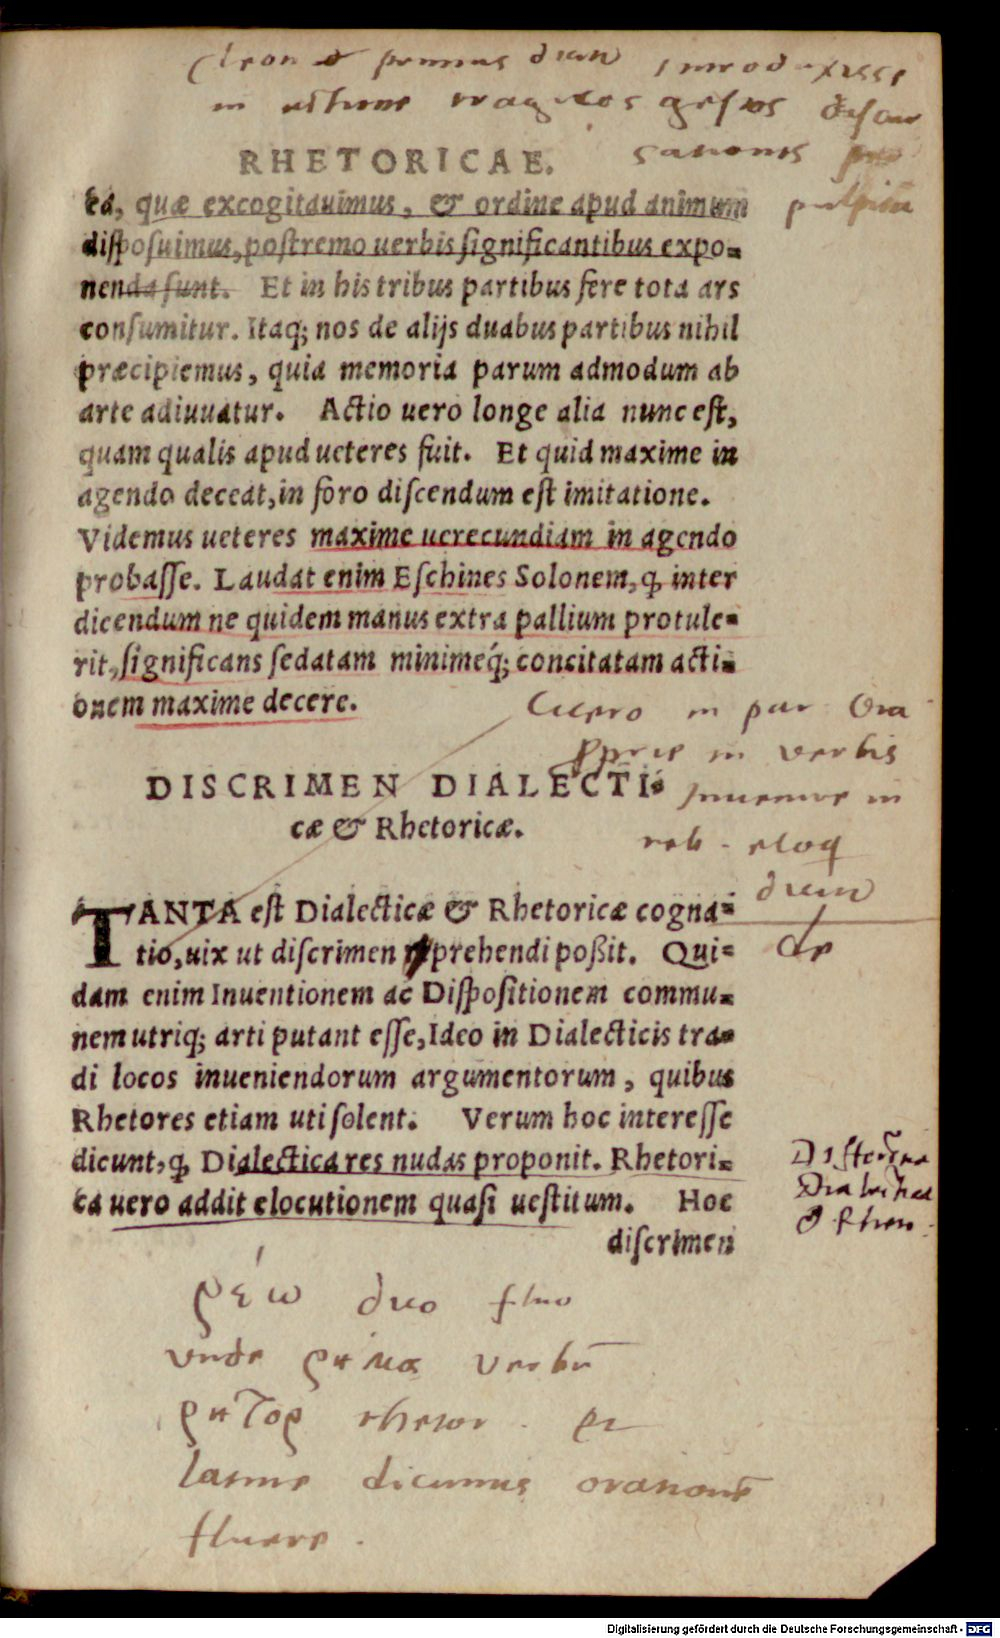 Cleon primus dicitur introduxisse
in actione tragicos gestus
RHETORICAE.
ea, quæ excogitauimus, & ordine apud animum
disposuimus, postremo uerbis significantibus expo-
nenda sunt. Et in his tribus partibus fere tota ars
consumitur. Itaq; nos de alijs duabus partibus nihil
præcipiemus, quia memoria parum admodum ab
arte adiuuatur. Actio uero longe alia nunc est,
quam qualis apud ueteres fuit. Et quid maxime in
agendo deceat, in foro discendum est imitatione.
Videmus ueteres maxime uerecundiam in agendo
probasse. Laudat enim Eschines Solonem, ꝙ inter
dicendum ne quidem manus extra pallium protule-
rit, significans sedatam minimeq́; concitatam acti-
onem maxime decere.
Cicero in par Ora
in verbis
DISCRIMEN DIALECTI-
inuenire in
cæ & Rhetoricæ.
reb. eloq
TANTA est Dialecticæ & Rhetoricæ cogna-
tio, uix ut discrimen prehendi poßit. Qui-
dam enim Inuentionem ac Dispositionem commu-
nem utriq; arti putant esse, Ideo in Dialecticis tra-
di locos inueniendorum argumentorum, quibus
Rhetores etiam uti solent. Verum hoc interesse
dicunt, ꝙ Dialectica res nudas proponit. Rhetori-
ca uero addit elocutionem quasi uestitum. Hoc
discrimen
ῥέω duo fluo
vnde ρημα verbū
ρητορ rhetor. et
latine dicimus orationē
fluere.
Digitalisierung gefördert durch die Deutsche Forschungsgemeinschaft - DFG